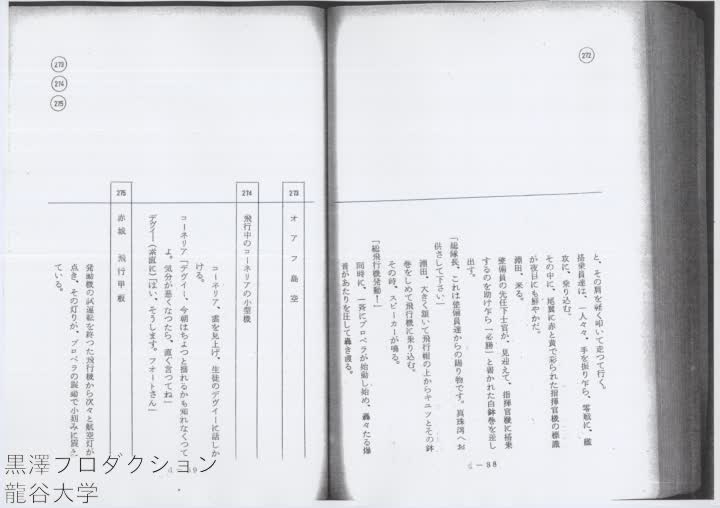 272
と、その肩を軽く叩いて走つて行く。
搭乗員達は、一人々々、手を振り乍ら、零戦に、艦
攻に、乗り込む。
その中に、尾翼に赤と黄で彩られた指揮官機の標識
が夜目にも鮮やかだ。
淵田、来る。
整備員の先任下士官が、見迎えて、指揮官機に搭乗
するのを助け乍ら「必勝」と書かれた白鉢巻を差し
出す。
「総隊長、これは整備員達からの贈り物です。真珠湾へお
供さして下さい」
淵田、大きく頷いて飛行帽の上からキユツとその鉢
巻をしめて飛行機に乗り込む。
その時、スピーカーが鳴る。
「総飛行機発動!」
同時に、一斉にプロペラが始動し始め、轟々たる爆
音があたりを圧して轟き渡る。
d－88
273
274
275
273 オアフ島空
274 飛行中のコーネリアの小型機
コーネリア、雲を見上げ、生徒のデヴイーに話しか
ける。
コーネリア「デヴイー、今朝はちよつと揺れるかも知れなくつて
よ。気分が悪くなつたら、直ぐ言つてね」
デヴイー(素直に)「はい、そうします。フオートさん」
275 赤城 飛行甲板
発動機の試運転を終つた飛行機から次々と航空灯が
点き、その灯りが、プロペラの振動で小刻みに震え
ている。
黒澤プロダクション
龍谷大学